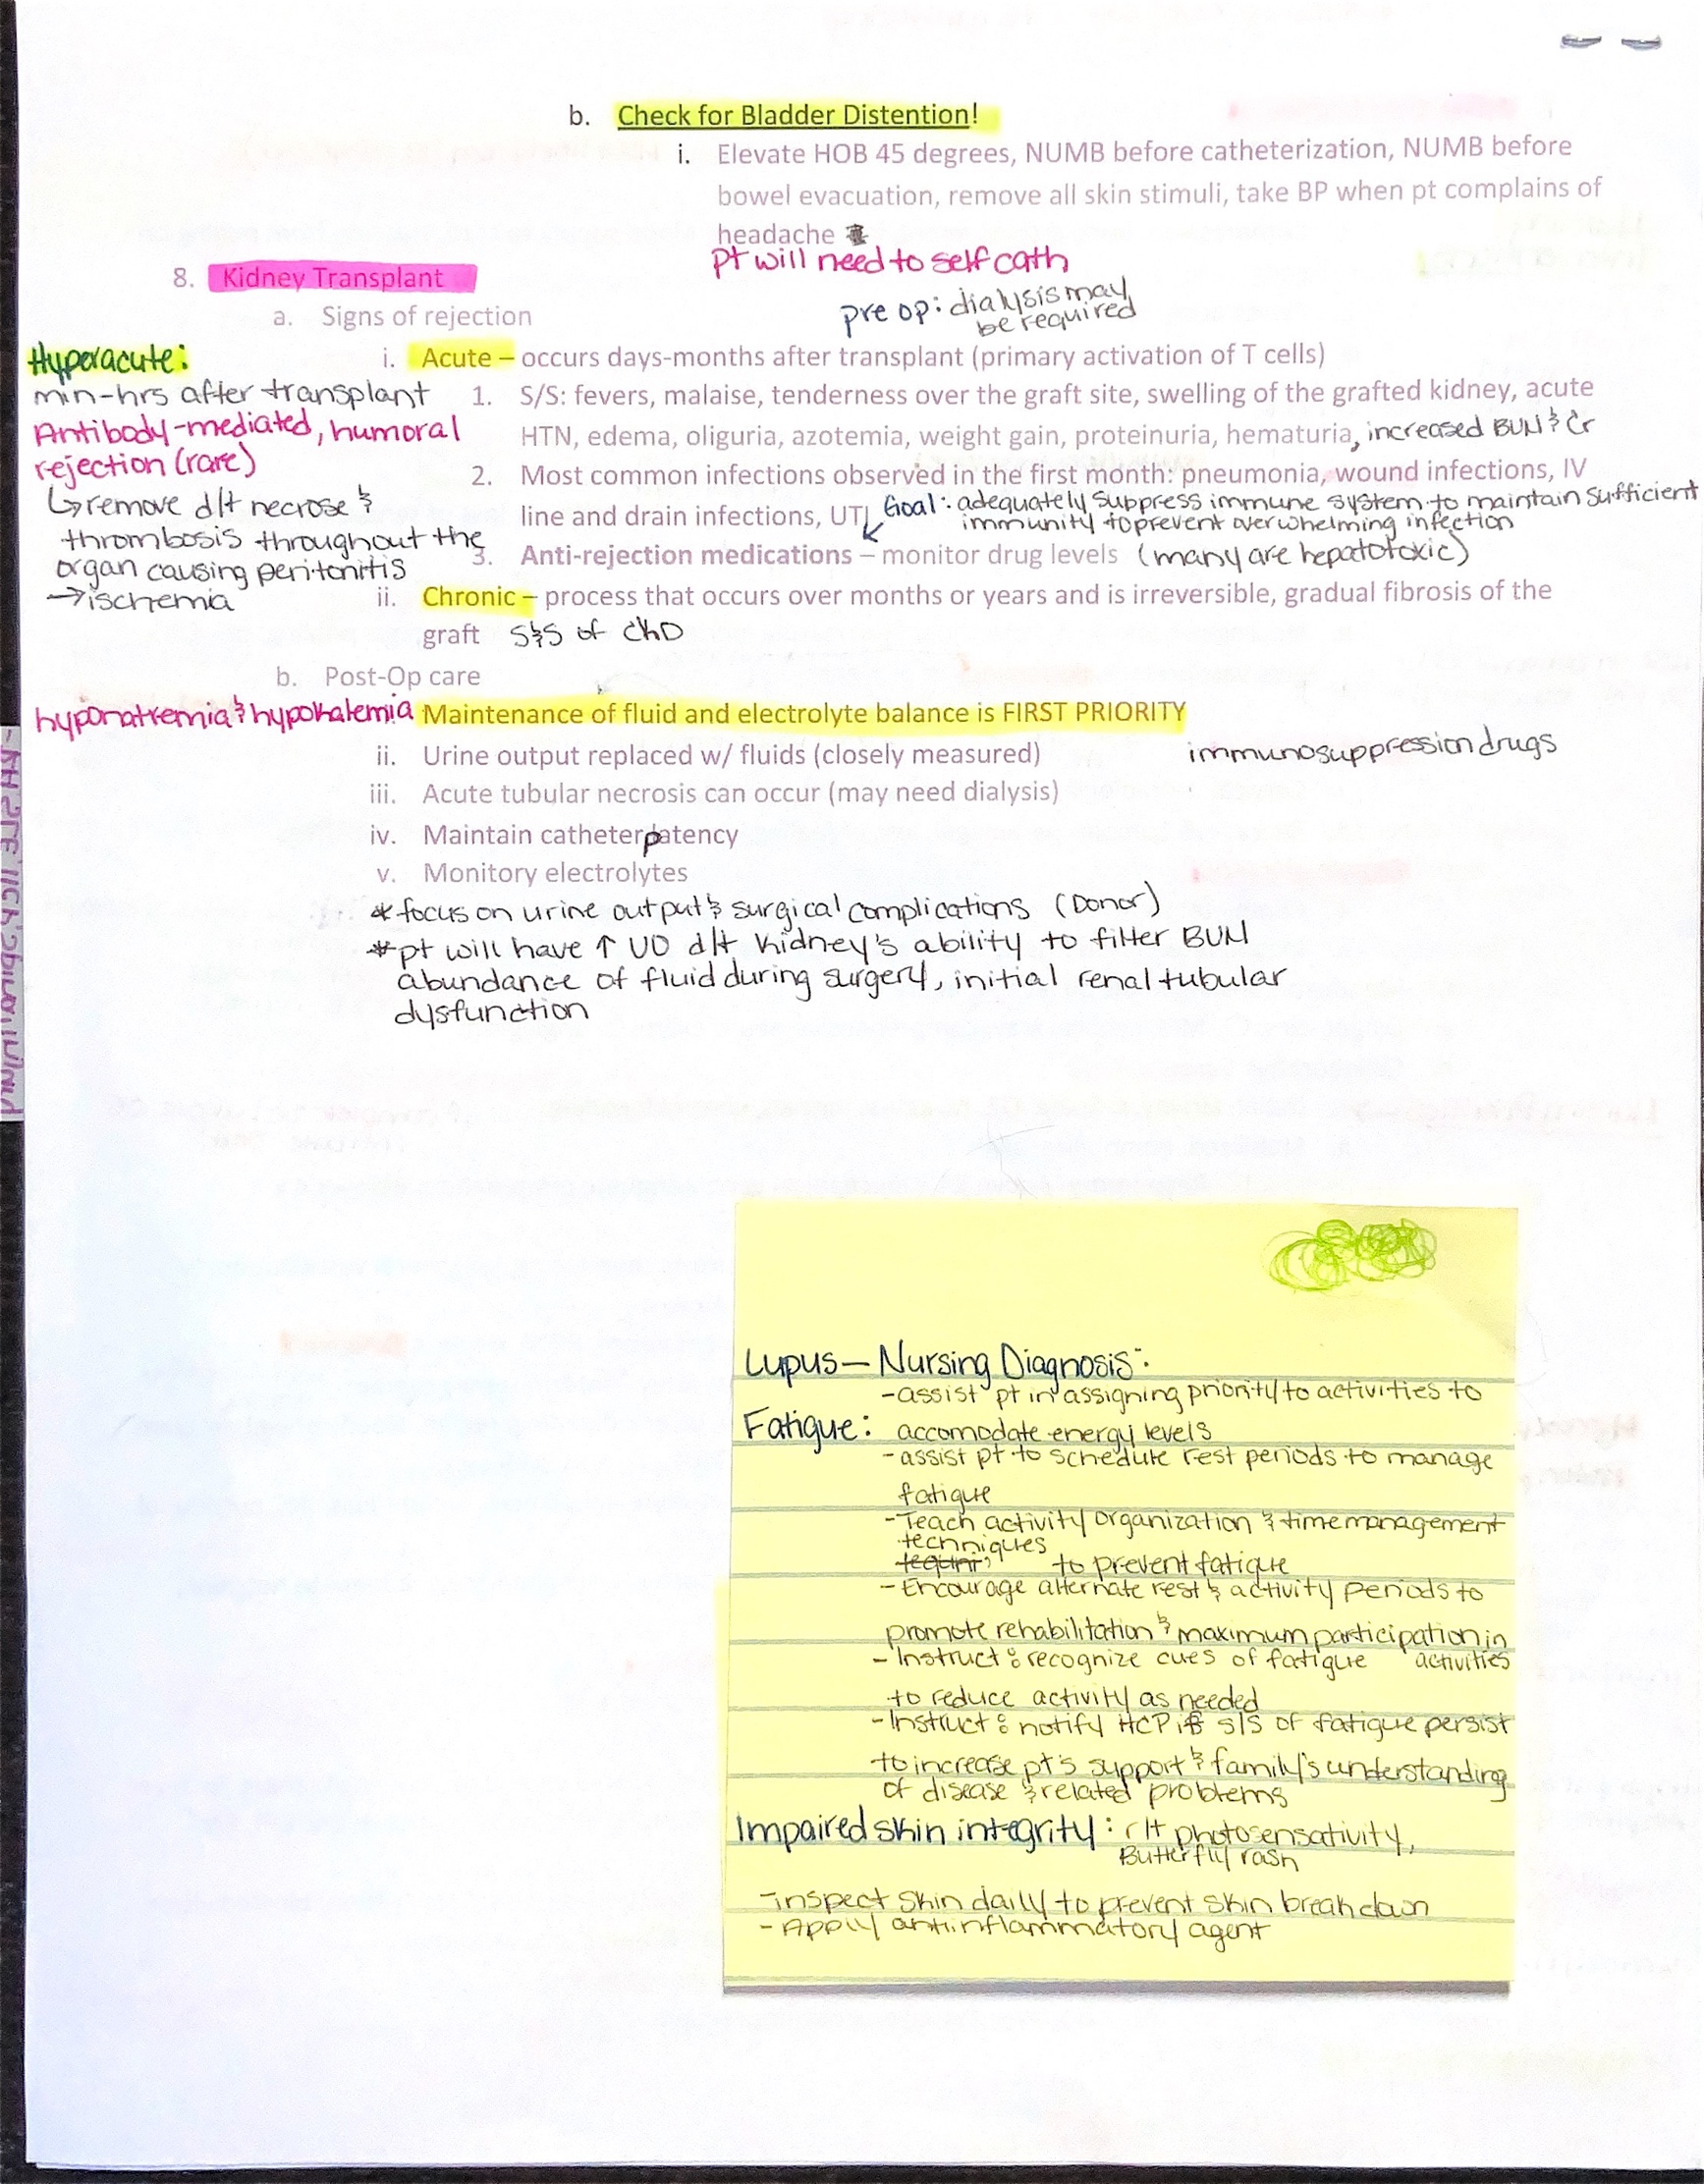 b. Check for Bladder Distention!
i. Elevate HOB 45 degrees, NUMB before catheterization, NUMB before
bowel evacuation, remove all skin stimuli, take BP when pt complains of
headache
pt will need to self cath
8. Kidney Transplant
pre op: dialysis may
be required
a. Signs of rejection
Hyperacute:
min-hrs after transplant
Antibody-mediated, humoral
rejection (rare)
↳ remove d/t necrose &
thrombosis throughout the
organ causing peritonitis
→ ischemia
i. Acute – occurs days-months after transplant (primary activation of T cells)
1. S/S: fevers, malaise, tenderness over the graft site, swelling of the grafted kidney, acute
HTN, edema, oliguria, azotemia, weight gain, proteinuria, hematuria, increased BUN & Cr
2. Most common infections observed in the first month: pneumonia, wound infections, IV
line and drain infections, UTI
Goal: adequately suppress immune system to maintain sufficient
immunity to prevent overwhelming infection
3. Anti-rejection medications – monitor drug levels (many are hepatotoxic)
ii. Chronic – process that occurs over months or years and is irreversible, gradual fibrosis of the
graft S&S of CKD
b. Post-Op care
hyponatremia & hypokalemia Maintenance of fluid and electrolyte balance is FIRST PRIORITY
ii. Urine output replaced w/ fluids (closely measured) immunosuppression drugs
iii. Acute tubular necrosis can occur (may need dialysis)
iv. Maintain catheter patency
v. Monitory electrolytes
* focus on urine output & surgical complications (Donor)
* pt will have ↑ UO d/t kidney's ability to filter BUN
abundance of fluid during surgery, initial renal tubular
dysfunction
Lupus – Nursing Diagnosis:
- assist pt in assigning priority to activities to
Fatigue: accomodate energy levels
- assist pt to schedule rest periods to manage
fatigue
- Teach activity organization & time management
techniques
to prevent fatigue
- Encourage alternate rest & activity periods to
promote rehabilitation & maximum participation in
activities
- Instruct: recognize cues of fatigue
to reduce activity as needed
- Instruct: notify HCP if s/s of fatigue persist
to increase pt's support & family's understanding
of disease & related problems
Impaired skin integrity: r/t photosensativity,
Butterfly rash
- inspect skin daily to prevent skin breakdown
- Apply antiinflammatory agent